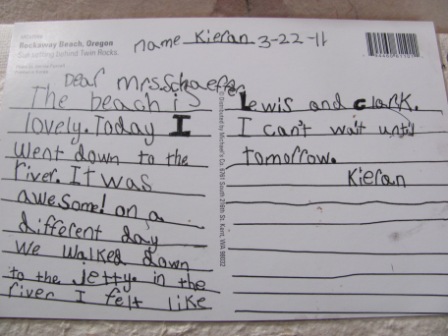 Rockaway Beach, Oregon
Sun setting behind Twin Rocks.
name Kieran 3-22-11
Dear Mrs. Schaefer
The beach is
lovely. Today I
went down to the
river. It was
awesome! on a
different day
we walked down
to the jetty. in the
river I felt like
Lewis and Clark.
I can't wait until
tomorrow.
Kieran